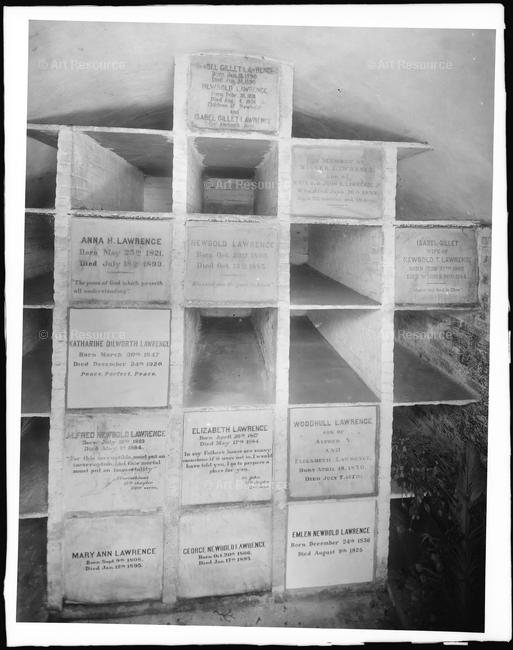 © Art Resource
© Art Resource
© Art Resource
ISABEL GILLET LAWRENCE
Born Jan.
Died
NEWBOLD LAWRENCE
Born Feb.
Died Aug.
Children of Newbold
and
ISABEL GILLET LAWRENCE
© Art Resource
© Art Resource
© Art Resource
IN MEMORY OF
LAWRENCE
SON OF
LAWRENCE
ANNA H. LAWRENCE
Born May 25th 1821.
Died July 18th 1893.
"The peace of God which passeth
all understanding."
NEWBOLD LAWRENCE
Born Oct
Died Oct
ISABEL GILLET
WIFE OF
NEWBOLD T. LAWRENCE
KATHARINE DILWORTH LAWRENCE
Born March 30th 1847
Died December 24th 1920
Peace, Perfect, Peace.
© Art Resource
© Art Resource
© Art Resource
ALFRED NEWBOLD LAWRENCE
Born July
Died May 1884.
"For this corruptible must put on
incorruption, and this mortal
must put on immortality."
ELIZABETH LAWRENCE
Born April 26th
Died May 17th 1884.
In my Father's house are many
mansions if it were not so I would
have told you, I go to prepare a
place for you.
St. John
WOODHULL LAWRENCE
SON OF
ALFRED N.
AND
ELIZABETH LAWRENCE.
BORN APRIL 18,
DIED JULY
© Art Resource
© Art Resource
© Art Resource
MARY ANN LAWRENCE
Born Sept 9th 1806.
Died Jan. 12th 1895.
GEORGE NEWBOLD LAWRENCE
Born Oct 20th 1806.
Died Jan. 17th 1895.
EMLEN NEWBOLD LAWRENCE
Born December 24th 1836
Died August 9th 1925